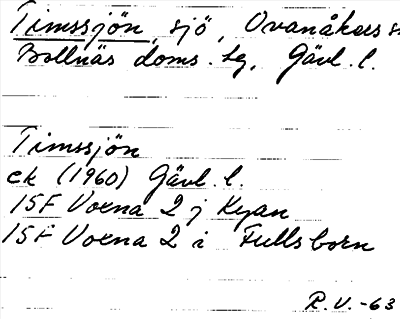 Timssjön, sjö, Ovanåkers s
Bollnäs doms. tg, Gävl. l.
Timssjön
ek (1960) Gävl. l.
15F Voxna 2 j Kyan
15F Voxna 2 i Fullsborn
R.V. -63